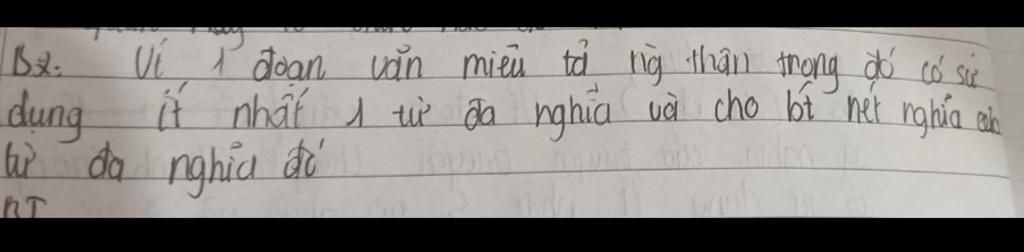 B2: Vi 1 đoạn văn miêu tả ng thân trong đó có sử
dụng ít nhất 1 từ đa nghĩa và cho bt nét nghĩa của
từ đa nghĩa đó
BT